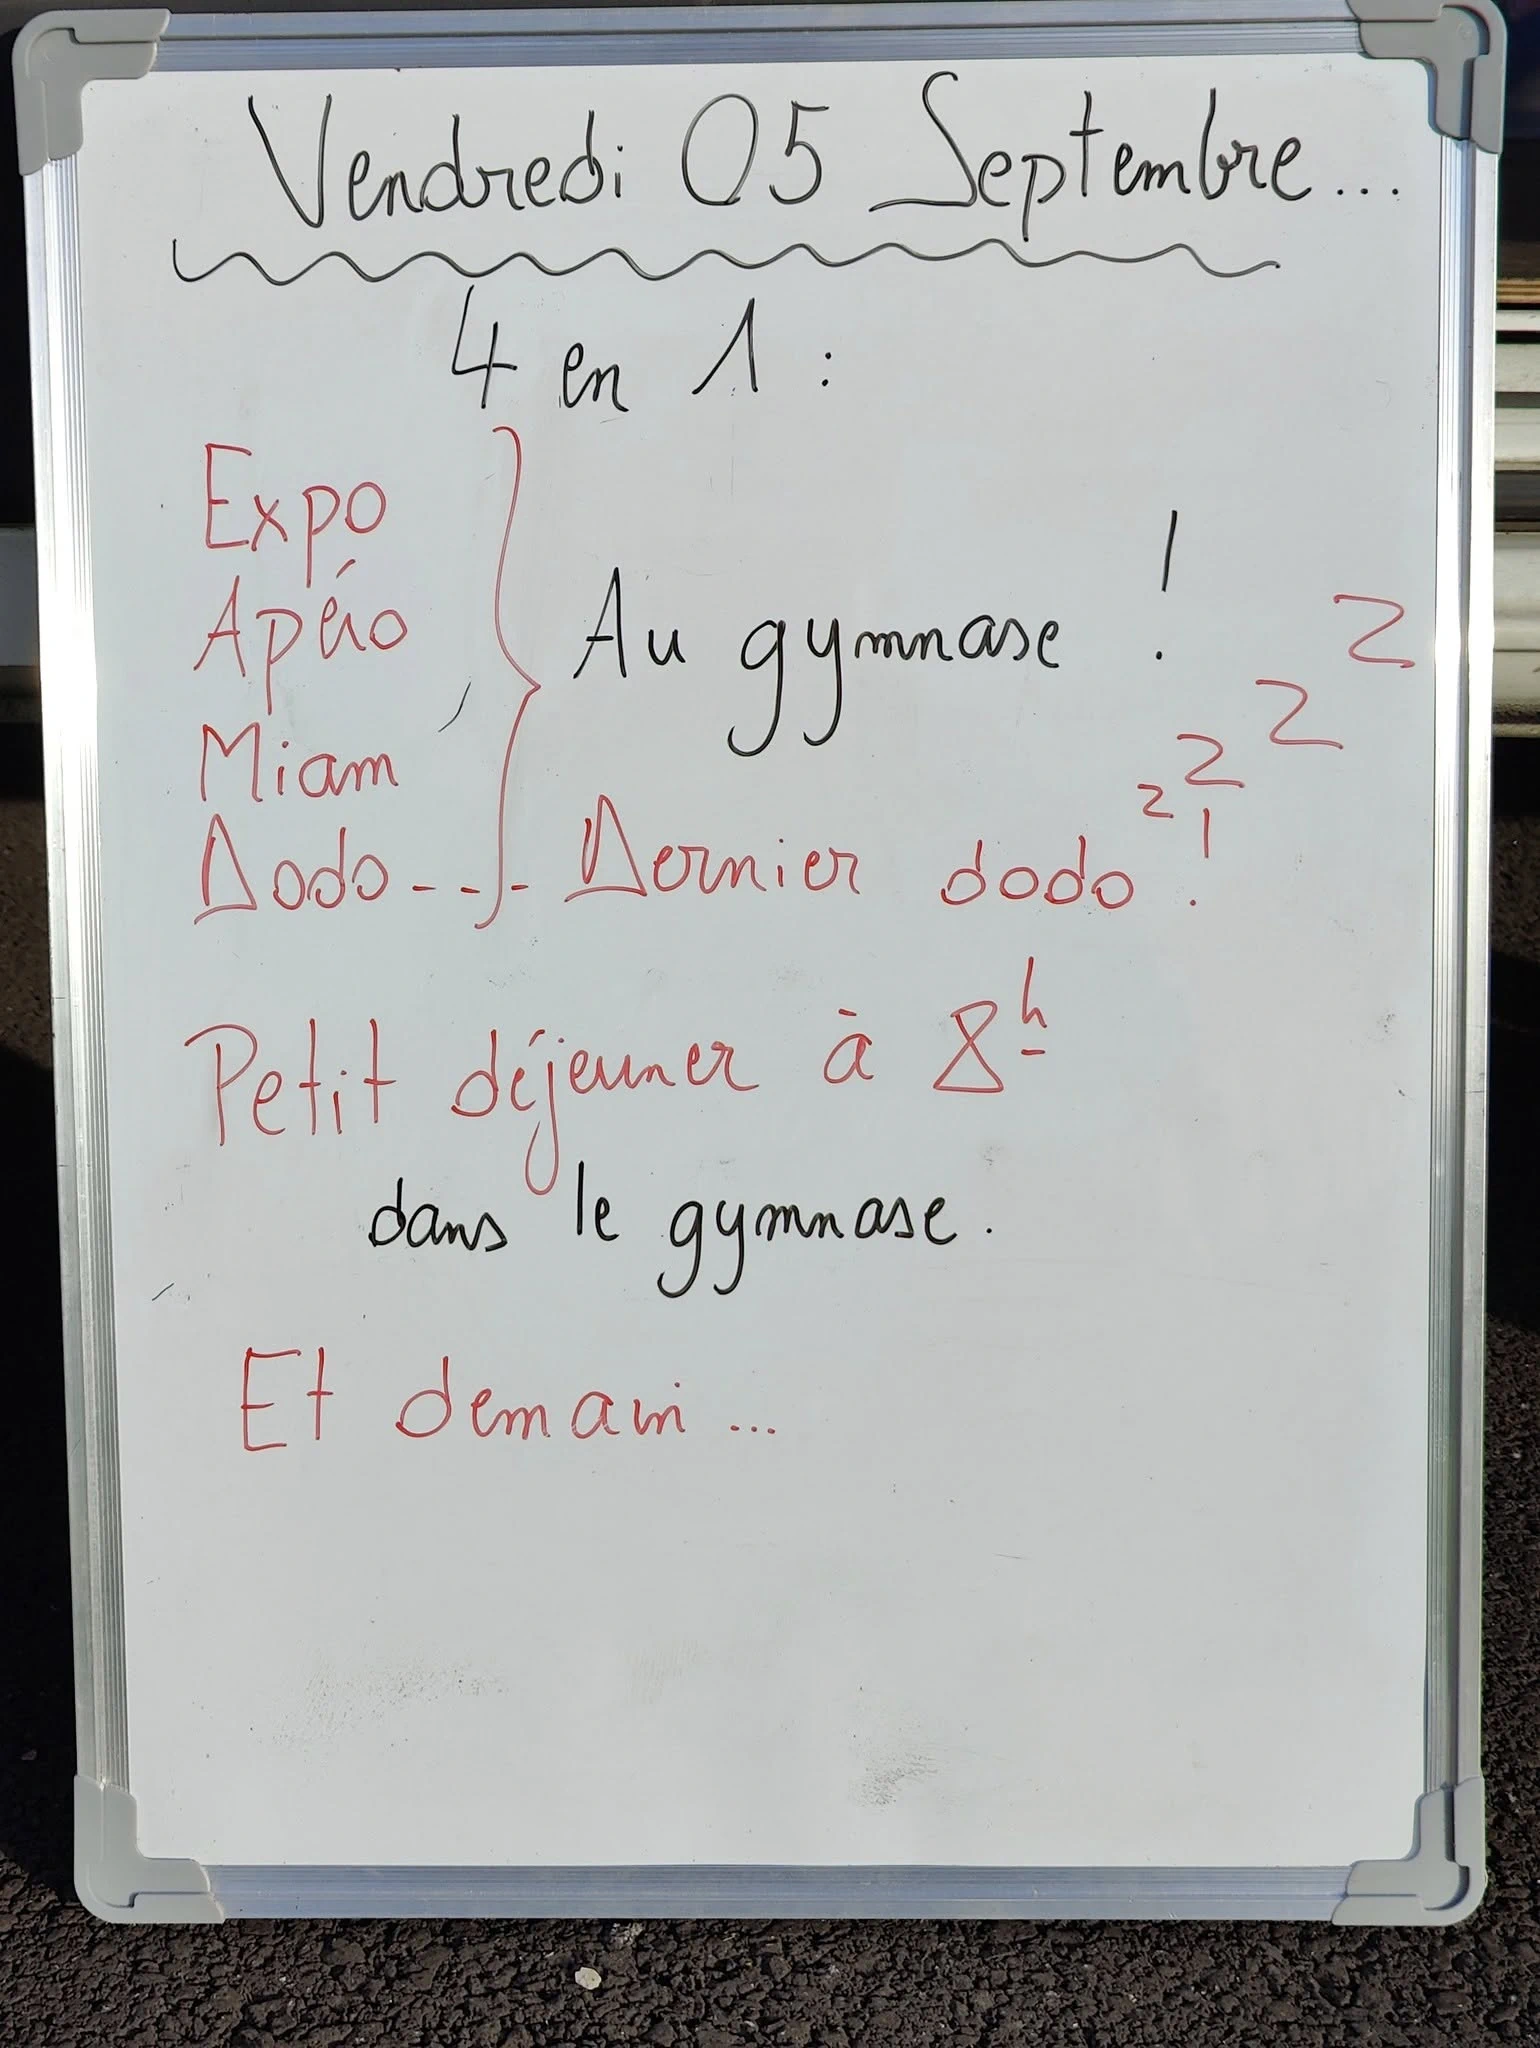 Vendredi 05 Septembre...
4 en 1 :
Expo
Apéro
Au gymnase !
Miam
Dodo - - . - Dernier dodo ! z z z z
Petit déjeuner à 8h
dans le gymnase.
Et demain ...